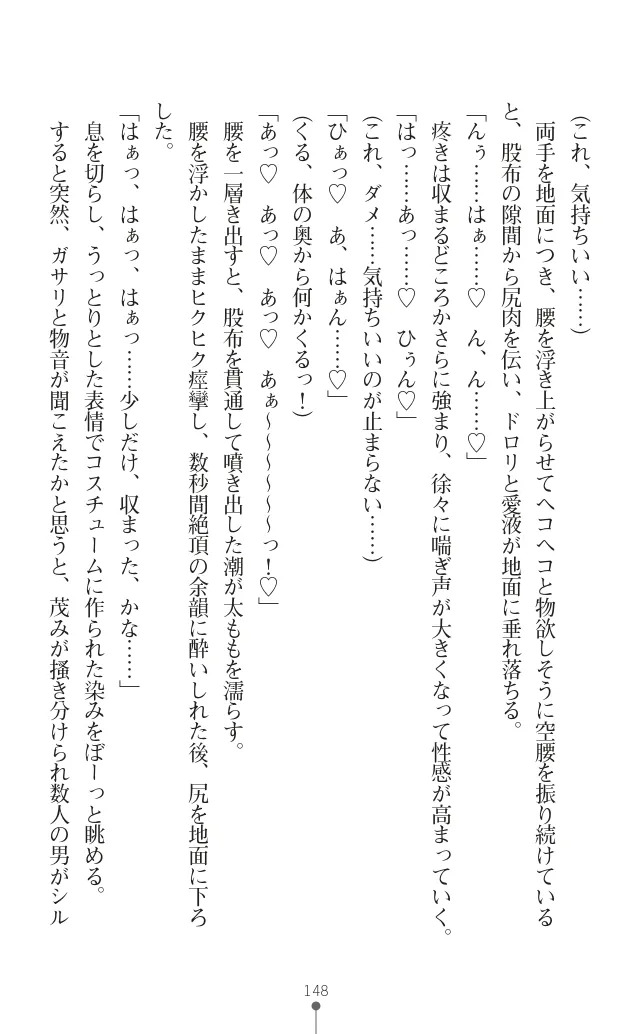 (これ、気持ちいい……)
両手を地面につき、腰を浮き上がらせてヘコヘコと物欲しそうに空腰を振り続けている
と、股布の隙間から尻肉を伝い、ドロリと愛液が地面に垂れ落ちる。
「んぅ……はぁ……♡　ん、ん……♡」
疼きは収まるどころかさらに強まり、徐々に喘ぎ声が大きくなって性感が高まっていく。
「はっ……あっ……♡　ひぅん♡」
(これ、ダメ……気持ちいいのが止まらない……)
「ひぁっ♡　あ、はぁん……♡」
(くる、体の奥から何かくるっ！)
「あっ♡　あっ♡　あっ♡　あぁ～～～～～～っ！♡」
腰を一層き出すと、股布を貫通して噴き出した潮が太ももを濡らす。
腰を浮かしたままヒクヒク痙攣し、数秒間絶頂の余韻に酔いしれた後、尻を地面に下ろ
した。
「はぁっ、はぁっ、はぁっ……少しだけ、収まった、かな……」
息を切らし、うっとりとした表情でコスチュームに作られた染みをぼーっと眺める。
すると突然、ガサリと物音が聞こえたかと思うと、茂みが掻き分けられ数人の男がシル
148